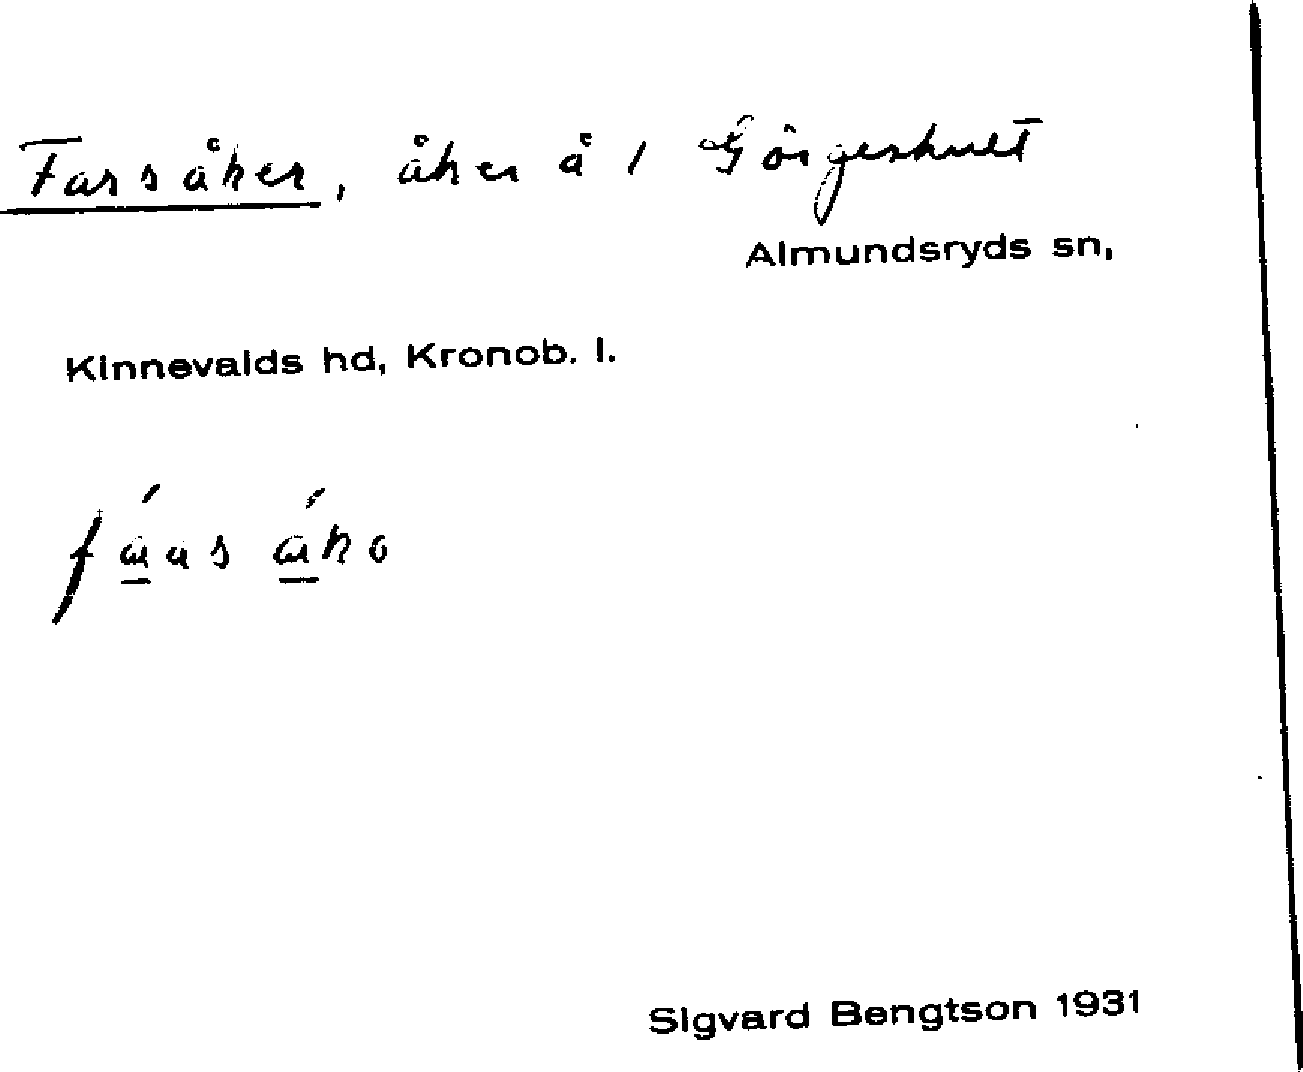 Farsåker, åker å 1 Görgeshult
Almundsryds sn,
Kinnevalds hd, Kronob. l.
Sigvard Bengtson 1931